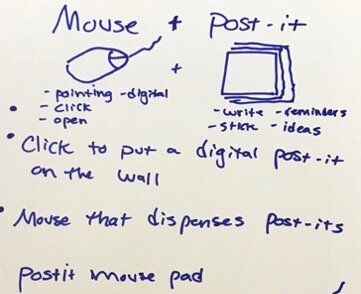 Mouse + Post-it
+
- pointing - digital
- click
- open
- write - reminders
- stick - ideas
• Click to put a digital post-it
on the wall
• Mouse that dispenses post-its
Postit mouse pad